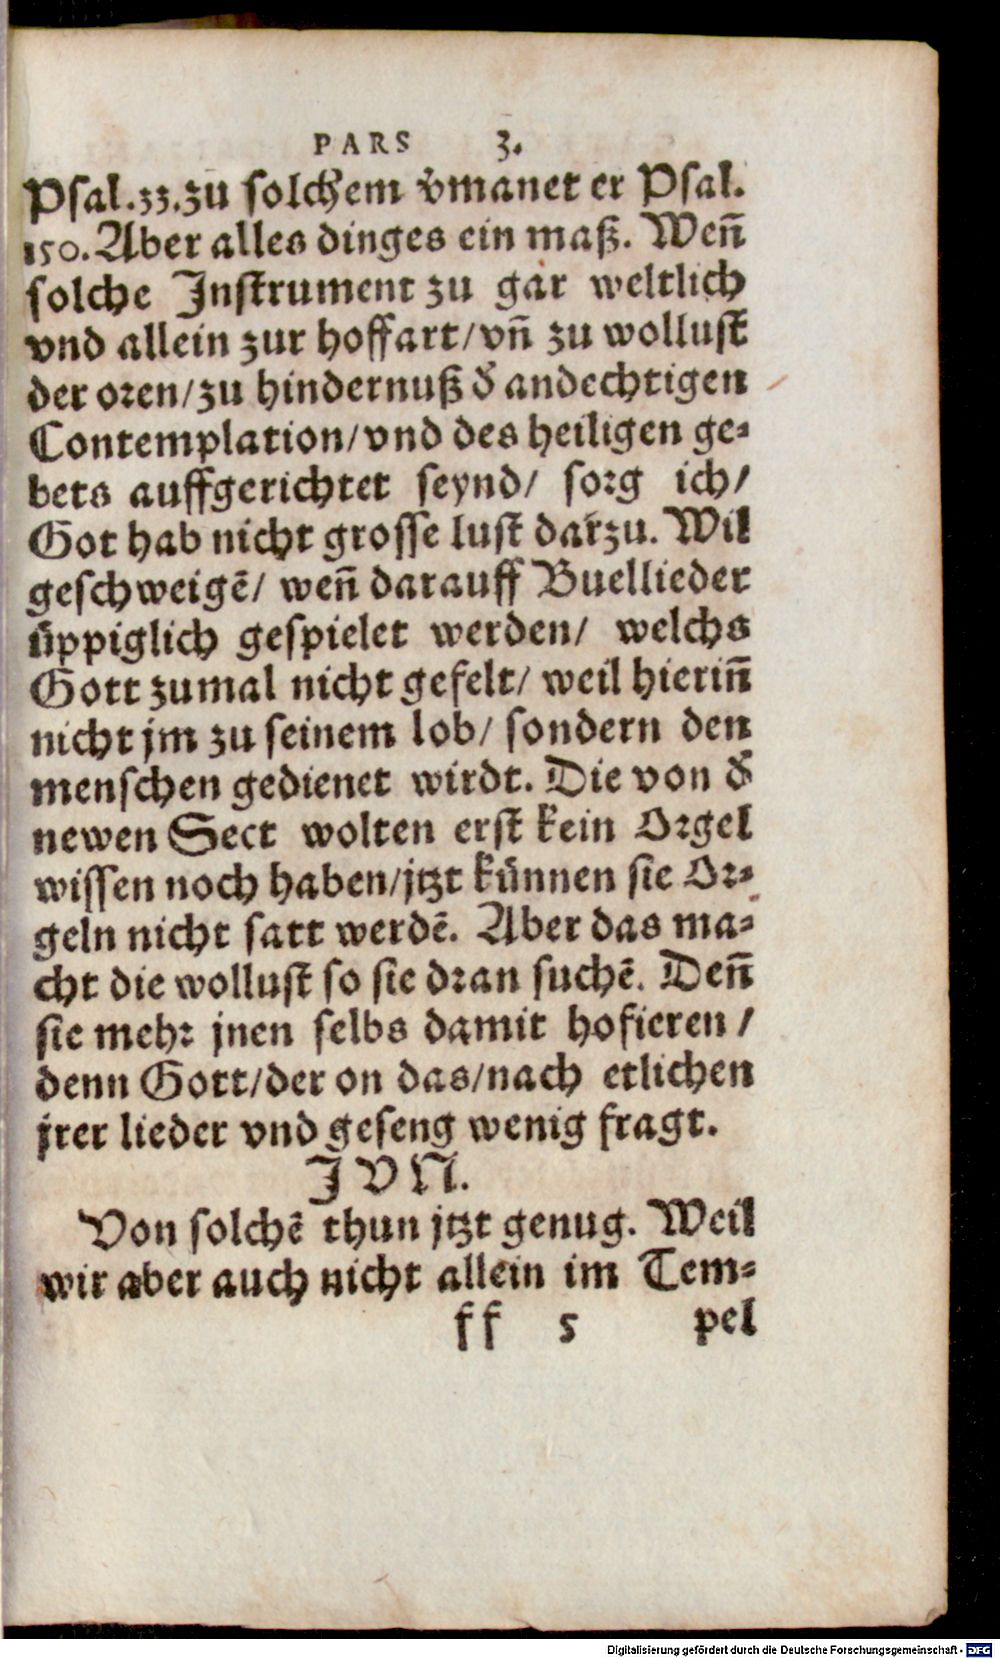 PARS 3.
Psal.33.zu solchem v̄manet er Psal.
150. Aber alles dinges ein maß. Weñ
solche Instrument zu gar weltlich
vnd allein zur hoffart/vñ zu wollust
der oren/zu hindernuß d̄ andechtigen
Contemplation/vnd des heiligen ge⸗
bets auffgerichtet seynd/ sorg ich/
Got hab nicht grosse lust darzu. Wil
geschweigē/ weñ darauff Buellieder
üppiglich gespielet werden/ welchs
Gott zumal nicht gefelt/ weil hieriñ
nicht jm zu seinem lob/ sondern den
menschen gedienet wirdt. Die von d̄
newen Sect wolten erst kein Orgel
wissen noch haben/jtzt künnen sie Or⸗
geln nicht satt werdē. Aber das ma⸗
cht die wollust so sie dran suchē. Deñ
sie mehr jnen selbs damit hofieren/
denn Gott/der on das/nach etlichen
jrer lieder vnd geseng wenig fragt.
JVN.
Von solchē thun jtzt genug. Weil
wir aber auch nicht allein im Tem⸗
ff 5 pel
Digitalisierung gefördert durch die Deutsche Forschungsgemeinschaft - DFG